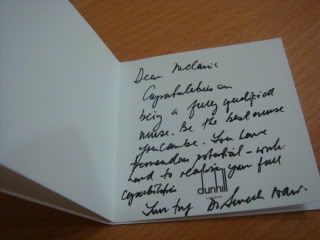 Dear Melanie
Congratulations on
being a fully qualified
nurse. Be the best nurse
you can be. You have
tremendous potential – work
hard to realise your full
capabilities
dunhill
LONDON
Dr Suresh